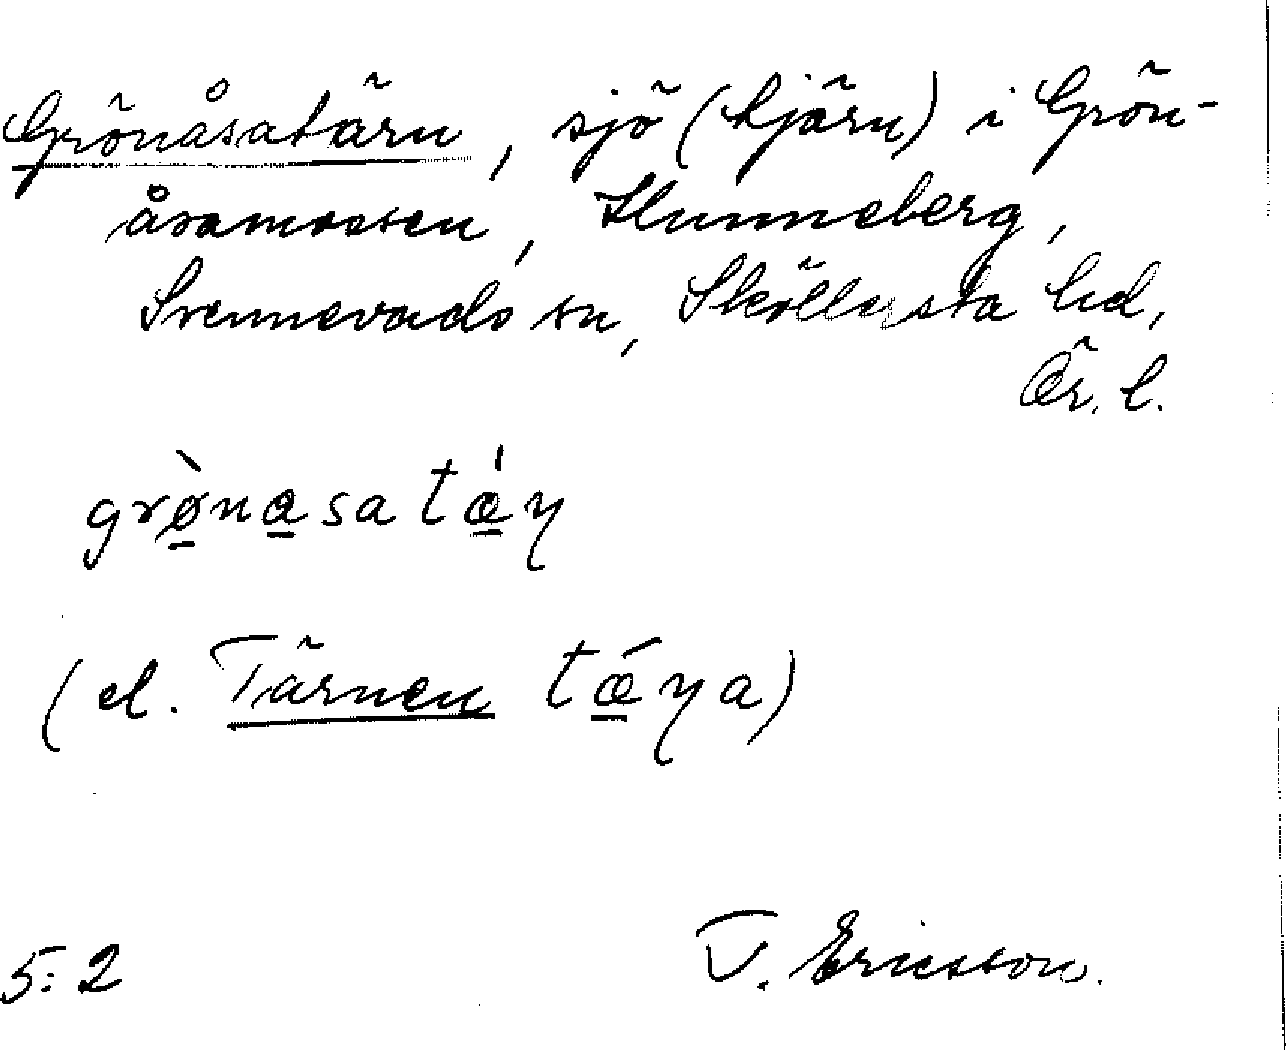 Grönåsatärn, sjö (tjärn) i Grön-
åsamossen, Hunneberg,
Svennevads sn, Sköllersta hd,
Ör. l.
grø̀nasatǽɳ
(el. Tärnen tǽɳa)
5:2 T. Ericsson.